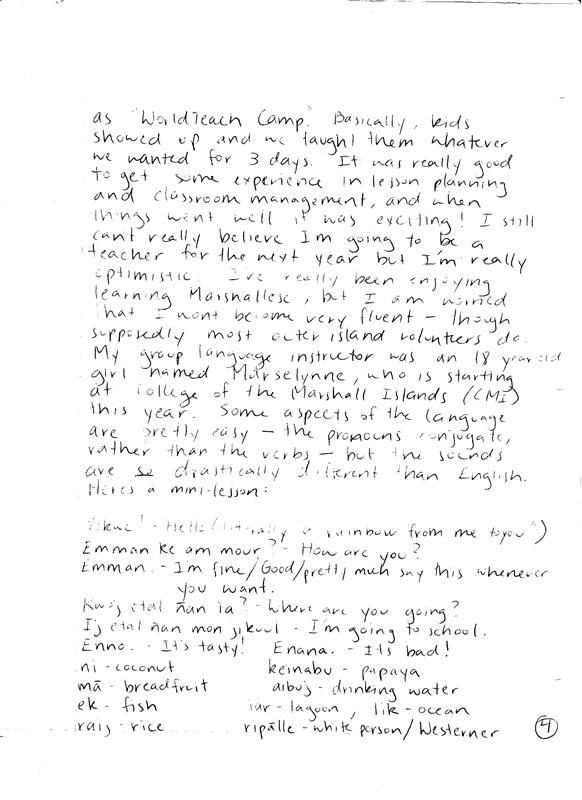 as "WorldTeach Camp." Basically, kids
showed up and we taught them whatever
we wanted for 3 days. It was really good
to get some experience in lesson planning
and classroom management, and when
things went well it was exciting! I still
cant really believe Im going to be a
teacher for the next year but I'm really
optimistic. I've really been enjoying
learning Marshallese, but I am worried
that I wont become very fluent - though
supposedly most outer island volunteers do.
My group language instructor was an 18 year old
girl named Marselynne, who is starting
at College of the Marshall Islands (CMI)
this year. Some aspects of the language
are pretty easy - the pronouns conjugate,
rather than the verbs - but the sounds
are so drastically different than English.
Heres a mini-lesson:
Yokwe! - Hello (literally "a rainbow from me to you")
Emman ke am mour? - How are you?
Emman. - Im fine/Good/pretty much say this whenever
you want.
Kwoj etal ñan ia? - Where are you going?
Ij etal ñan mon jikuul - I'm going to school.
Enno. - It's tasty! Enana. - It's bad!
ni - coconut keinabu - papaya
mā - breadfruit aibuj - drinking water
ek - fish iar - lagoon, lik - ocean
raij - rice ripālle - white person/Westerner
4